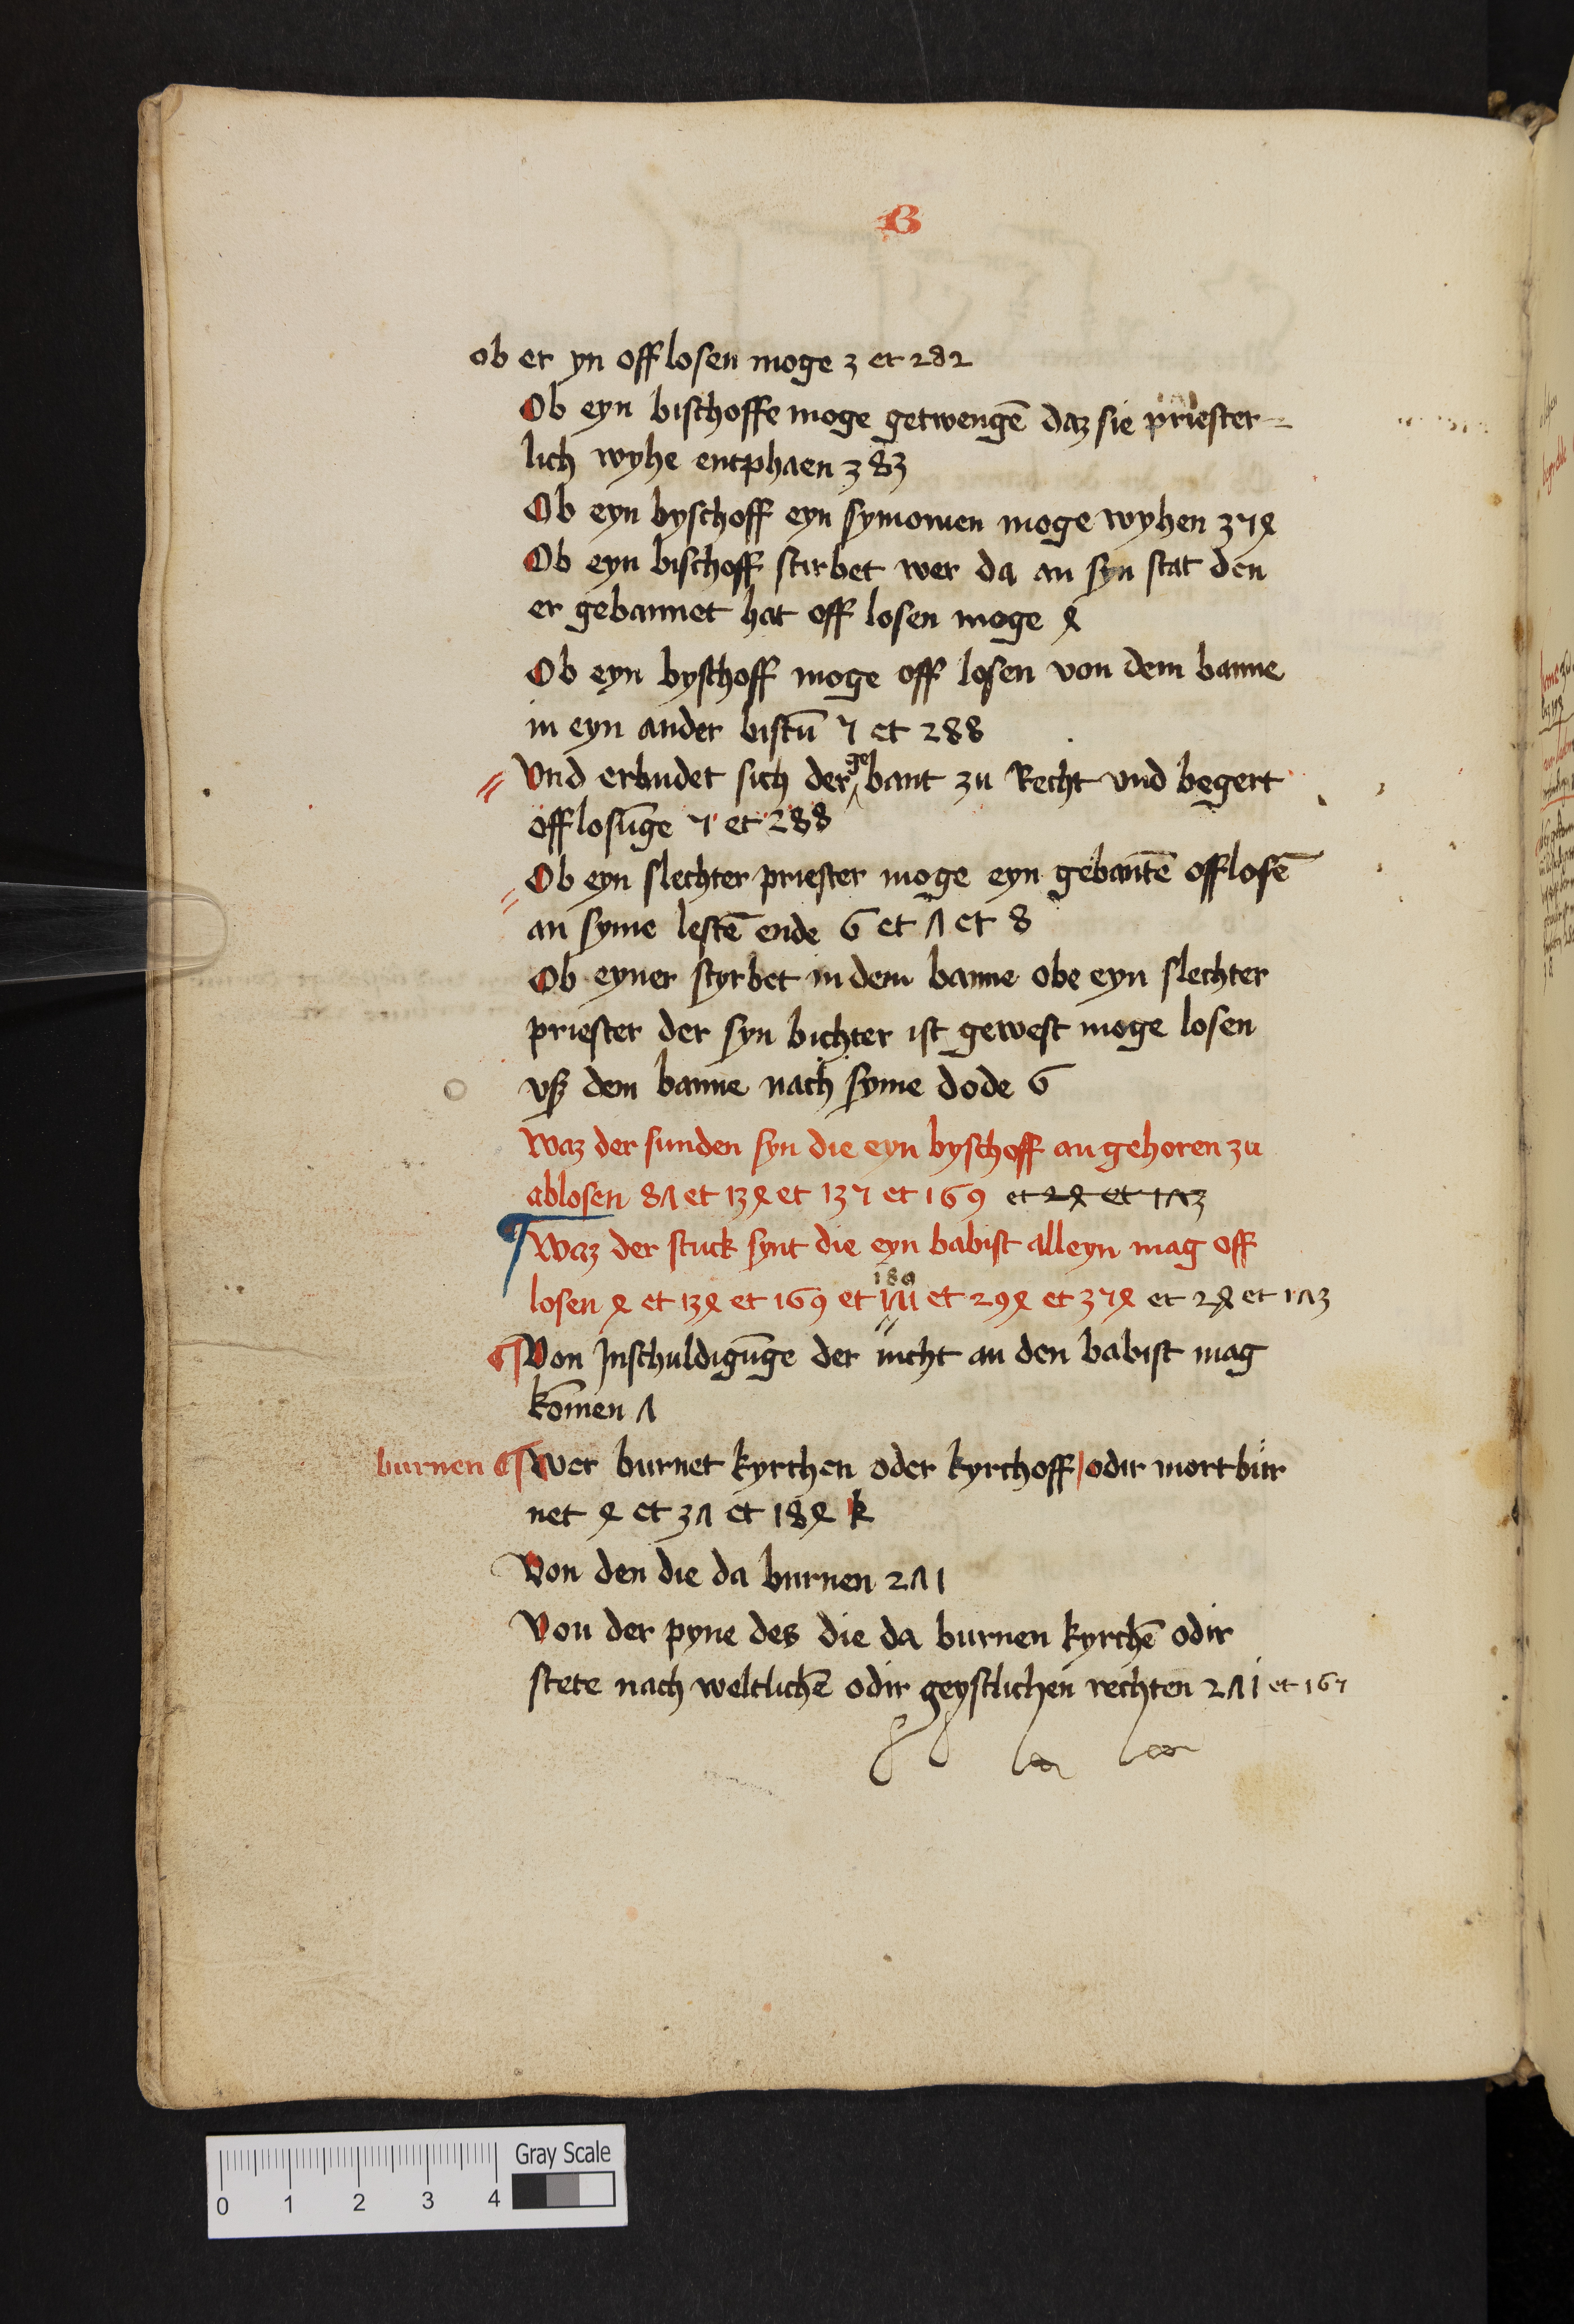 B
ob er yn offlosen moge 3 et 282
Ob eyn bischoffe moge getwengē daz sie priester=
lich wyhe entphaen 383
Ob eyn byschoff eyn symonien moge wyhen 374
Ob eyn bischoff stirbet wer da an syn stat den
er gebannet hat off losen moge 4
Ob eyn byschoff moge off losen von dem banne
in eyn ander bistū 7 et 288
Vnd erbudet sich der gebant zu Recht vnd begert
offlosūge 7 et 288
Ob eyn slechter priester moge eyn gebantē offlosē
an syme lestē ende 6 et 7 et 8
Ob eyner styrbet in dem banne obe eyn slechter
priester der syn bichter ist gewest moge losen
vß dem banne nach syme dode 6
Waz der sunden syn die eyn byschoff an gehoren zu
ablosen 87 et 134 et 137 et 169 et 24 et 173
Waz der stuck synt die eyn babist alleyn mag off
losen 4 et 134 et 169 et 294 et 374 et 24 et 173
Von Inschuldigūge der nicht an den babist mag
kōmen 7
burnen Wer burnet kyrchen oder kyrchoff odir mortbur
net 4 et 37 et 184 k
Von den die da burnen 271
Von der pyne des die da burnen kyrchē odir
stete nach weltlichē odir geystlichen rechten 271 et 167
Gray Scale
0 1 2 3 4